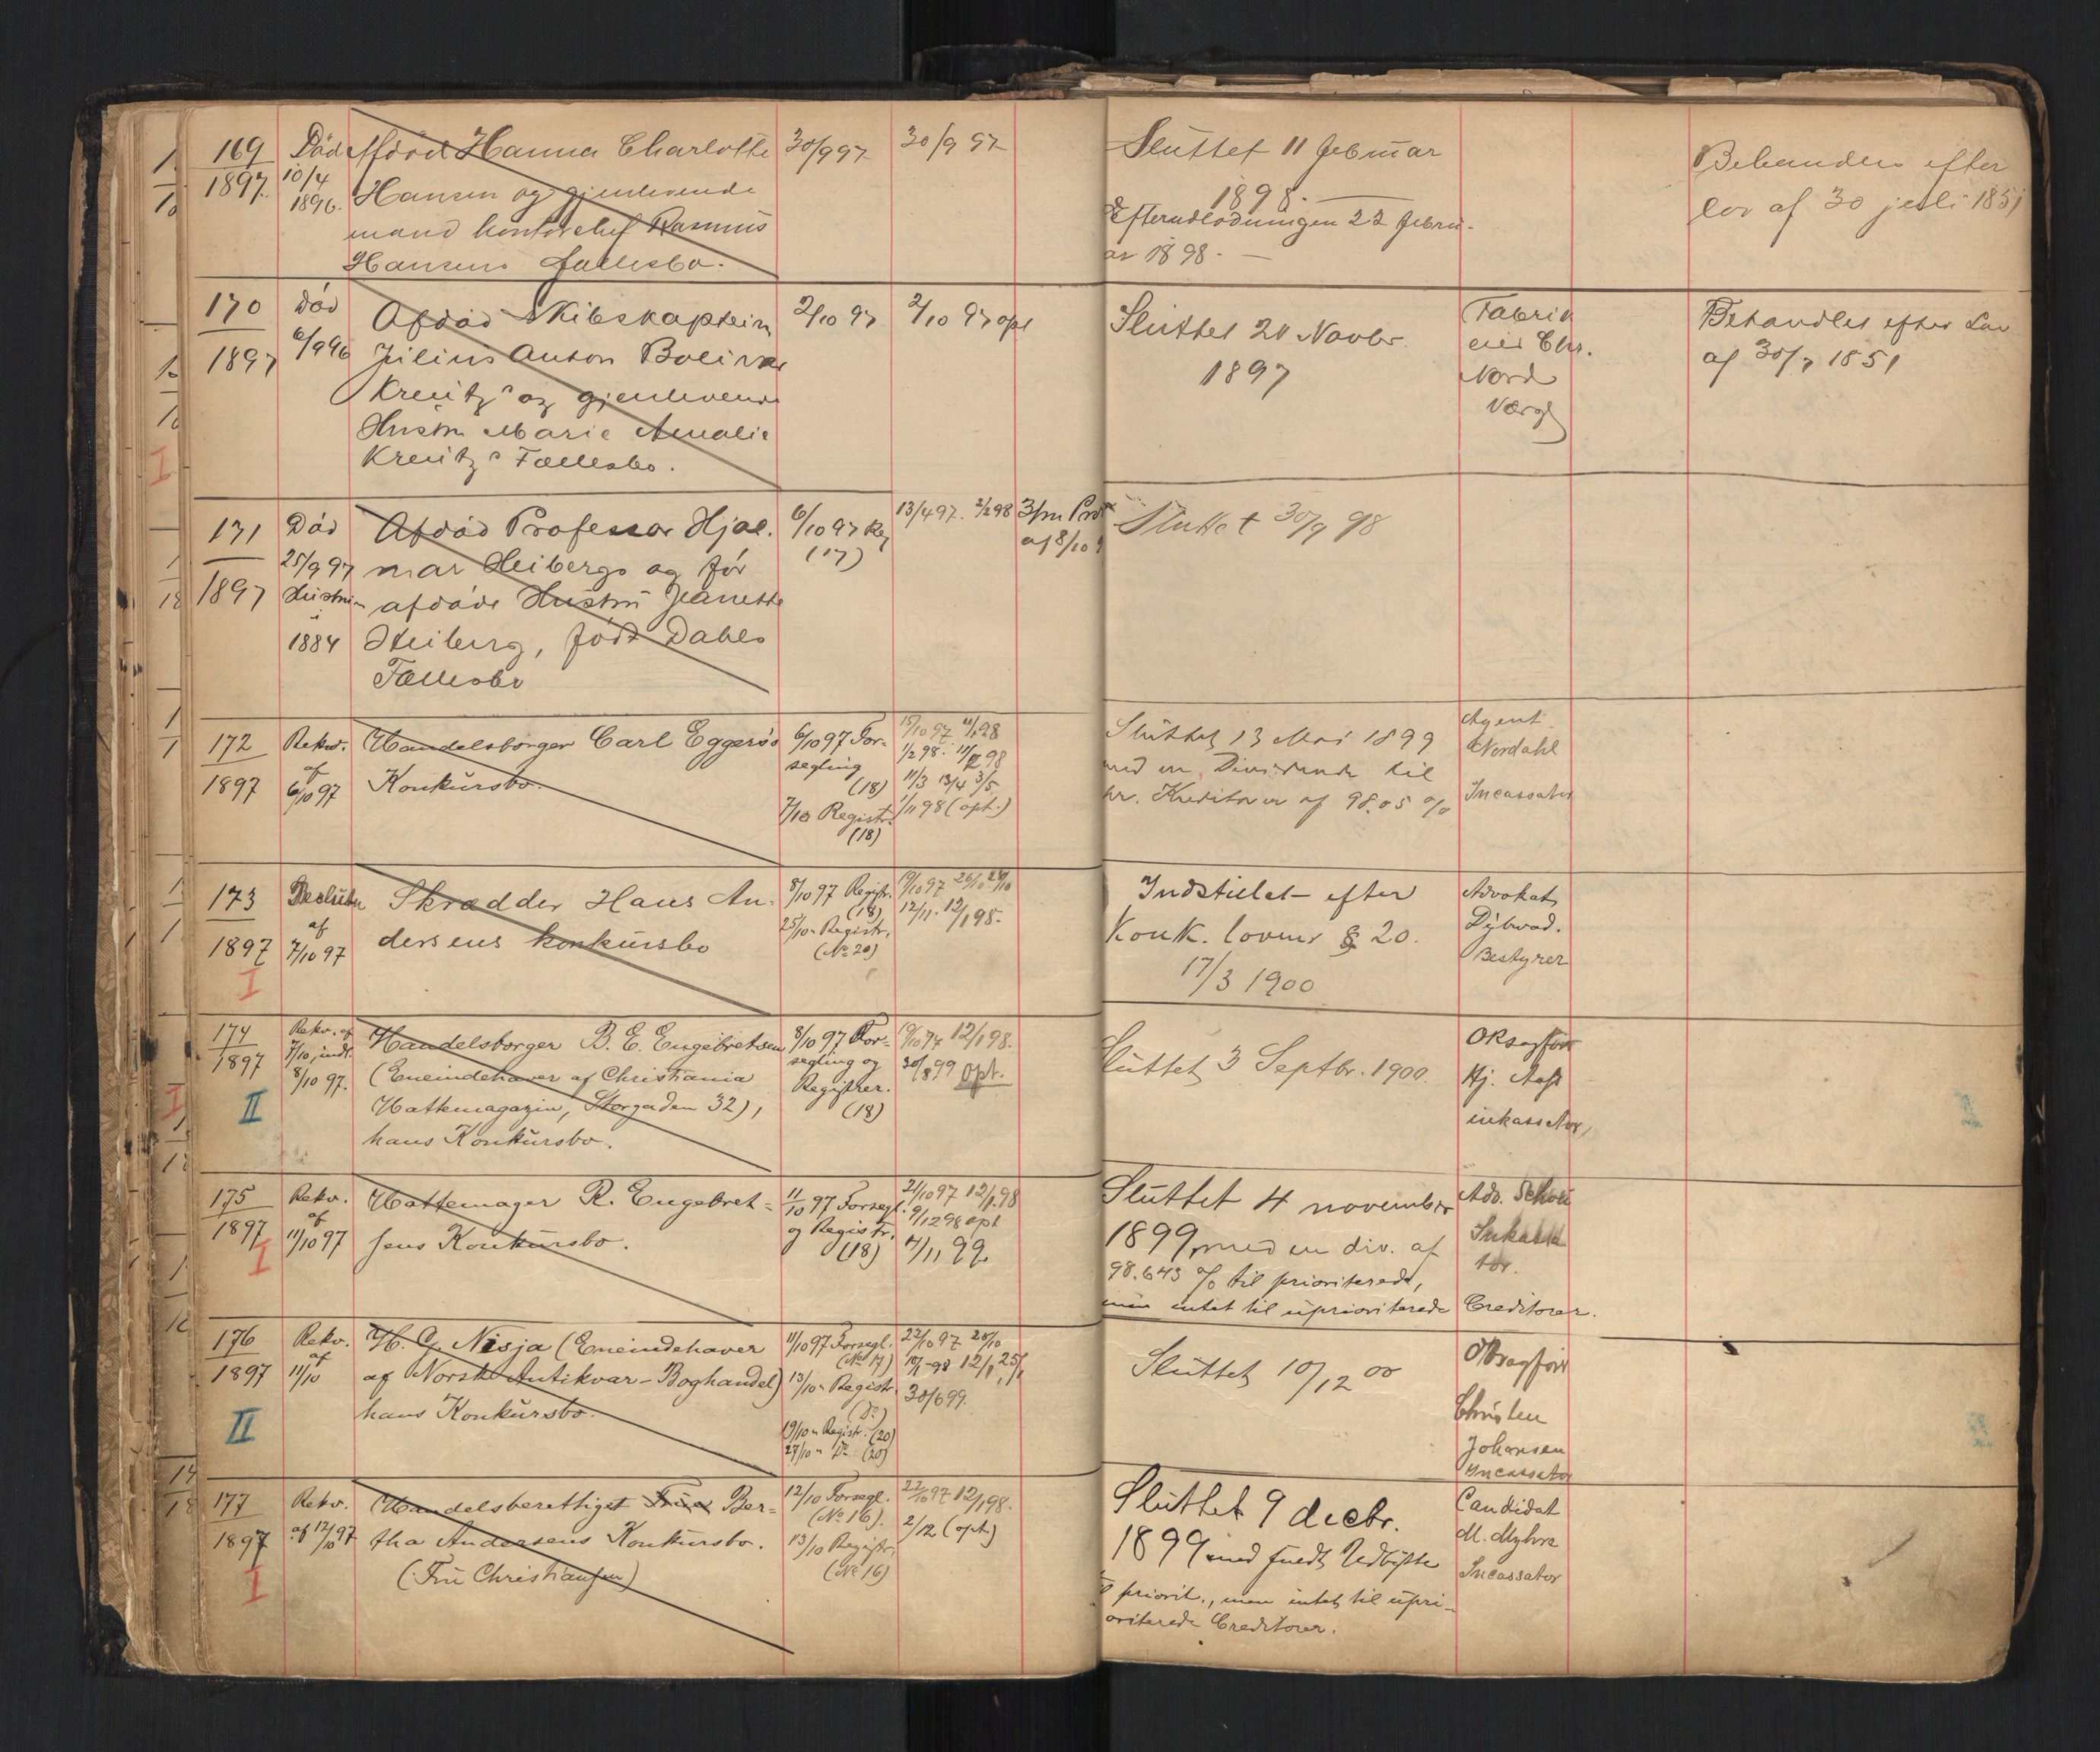 169
1897.
Död
10/4
1896.
Afdöd Hanna Charlotte
Hansen og gjenlevende
mand kontorchef Rasmus
Hansens fællesbo.
30/9 97
30/9 97
Sluttet 11 februar
1898.
Efterudlodningen 22 febru-
ar 1898.
Behandles efter
lov af 30 juli 1851
170
1897
Död
6/9 96
Afdöd Skibskaptein
Julius Anton Bolivar
Kreutz' og gjenlevende
Hustru Marie Amalie
Kreutz' Fællesbo.
2/10 97
2/10 97 opt
Sluttet 20 Novbr.
1897
Fabrik
eier Chr.
Nord
Værge
Behandles efter Lov
af 30/7 1851
171
1897
Död
25/9 97
Hustruen
1884
Afdöd Professor Hjal-
mar Heibergs og før
afdöde Hustru Jeanette
Heiberg, født Dahls
Fællesbo
6/10 97 Reg
(17)
13/4 97. 2/2 98
3/m Prok
af 8/10 9
Sluttet 30/9 98
172
1897
Rekv.
af
6/10 97
Handelsborger Carl Eggers's
Konkursbo.
6/10 97 For-
segling
(18)
7/10 Registr.
(18)
15/10 97 11/1 98
1/2 98. 11/2 98
11/3 13/4 3/5
1/11 98 (opt.)
Sluttet 13 Mai 1899
med en Dividende til
pr. Kreditorer af 98.05 %
Agent
Nordahl
Incassator
173
1897
I
Beslutn
af
7/10 97
Skrædder Hans An-
dersens konkursbo
8/10 97 Registr.
(18)
25/10 " Registr.
(No 20)
19/10 97 26/10 28/10
12/11. 12/1 98.
Indstillet efter
Konk. lovens § 20.
17/3 1900
Advokat
Dybwad.
Bestyrer
174
1897
II
Rekv. af
7/10, indl.
8/10 97.
Handelsborger B. E. Engebretsen
(Eneindehaver af Christiania
Hattemagazin, Storgaden 32),
hans Konkursbo.
8/10 97 For-
segling og
Registrer.
(18)
19/10 97 12/1 98.
30/8 99 opt.
Sluttet 3 Septbr. 1900.
OKsagfør
Hj.
inkassator,
175
1897
I
Rekv.
af
11/10 97
Hattemager R. Engebret-
sens Konkursbo.
11/10 97 Forsegl.
og Registr.
(18)
21/10 97 12/1 98
9/12 98 opt
4/11 99.
Sluttet 4 november
1899, med en div. af
98.643 % til prioriterede,
men intet til uprioriterede Creditorer.
Adv.
Inkassa
tor.
176
1897
II
Rekv.
af
11/10
H. G. Nisja (Eneindehaver
af Norsk Antikvar-Boghandel)
hans Konkursbo.
11/10 97 Forsegl.
(No 17)
13/10 " Registr.
(Do)
19/10 " Registr. (20)
27/10 " Do (20)
22/10 97 28/10
10/1-98 12/1, 25/1
30/6 99.
Sluttet 10/12 00
OKsagfør
Christen
Johansen
Incassator
177
1897
I
Rekv.
af 12/10 97
Handelsberettiget Frue Ber-
tha Andersens Konkursbo.
(Fru Christiansen)
12/10 Forsegl.
(No 16).
13/10 Registr.
(No 16)
22/10 97 12/1 98.
2/12 (opt.)
Sluttet 9 decbr.
1899 med fuldt Udbytte
til priorit., men intet til upri-
oriterede Creditorer.
Candidat
M. Myhre
Incassator